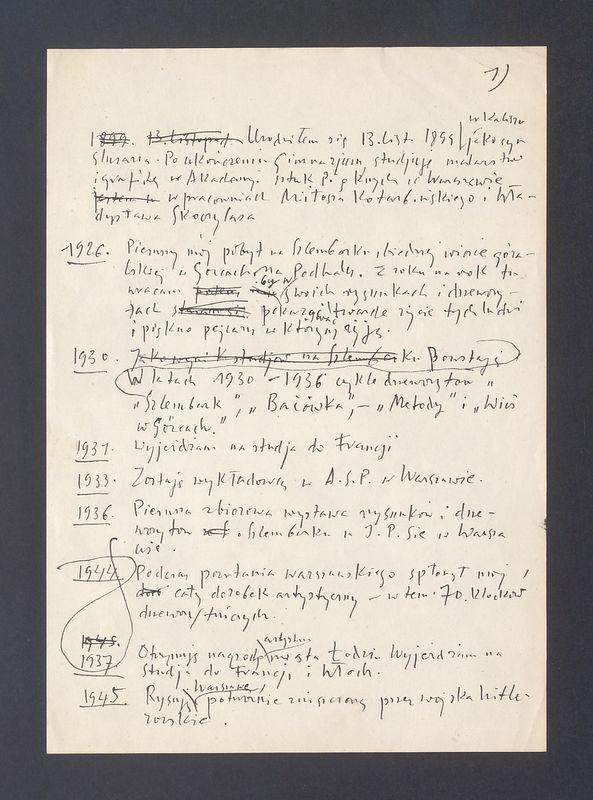 1)
w Kaliszu
1899. 13. Listopad Urodziłem się 13. List. 1899 jako syn
ślusarza. Po ukończeniu Gimnazjum studjuję malarstwo
i grafikę w Akademji Sztuk Pięknych w Warszawie
w pracowniach Miłosza Kotarbińskiego i Wła-
dysława Skoczylasa
1926. Pierwszy mój pobyt na Szlembarku, biednej wiosce góra-
lskiej w Gorcach na Podhalu. Z roku na rok tu
wracam by w swoich rysunkach i drzewory-
tach pokazywać twarde życie tych ludzi
i piękno pejzażu w którym żyją.
1930. na Szlembarku Powstają
W latach 1930 – 1936 cykle drzeworytów „
„Szlembark", „Bacówka", – „Metody" i „Wieś
w Gorcach."
1931. Wyjeżdżam na studja do Francji
1933. Zostaję wykładowcą w A.S.P. w Warszawie.
1936. Pierwsza zbiorowa wystawa rysunków i drze-
worytów o Szlembarku w I.P.Sie w Warsza
wie.
1944 Podczas powstania warszawskiego spłonął mój
cały dorobek artystyczny – w tem 70. klocków
drzeworytniczych.
1945.
artystycz
1937 Otrzymuję nagrodę miasta Łodzi. Wyjeżdżam na
studja do Francji i Włoch.
Warszawę
1945 Rysuję potwornie zniszczoną przez wojska hitle-
rowskie.